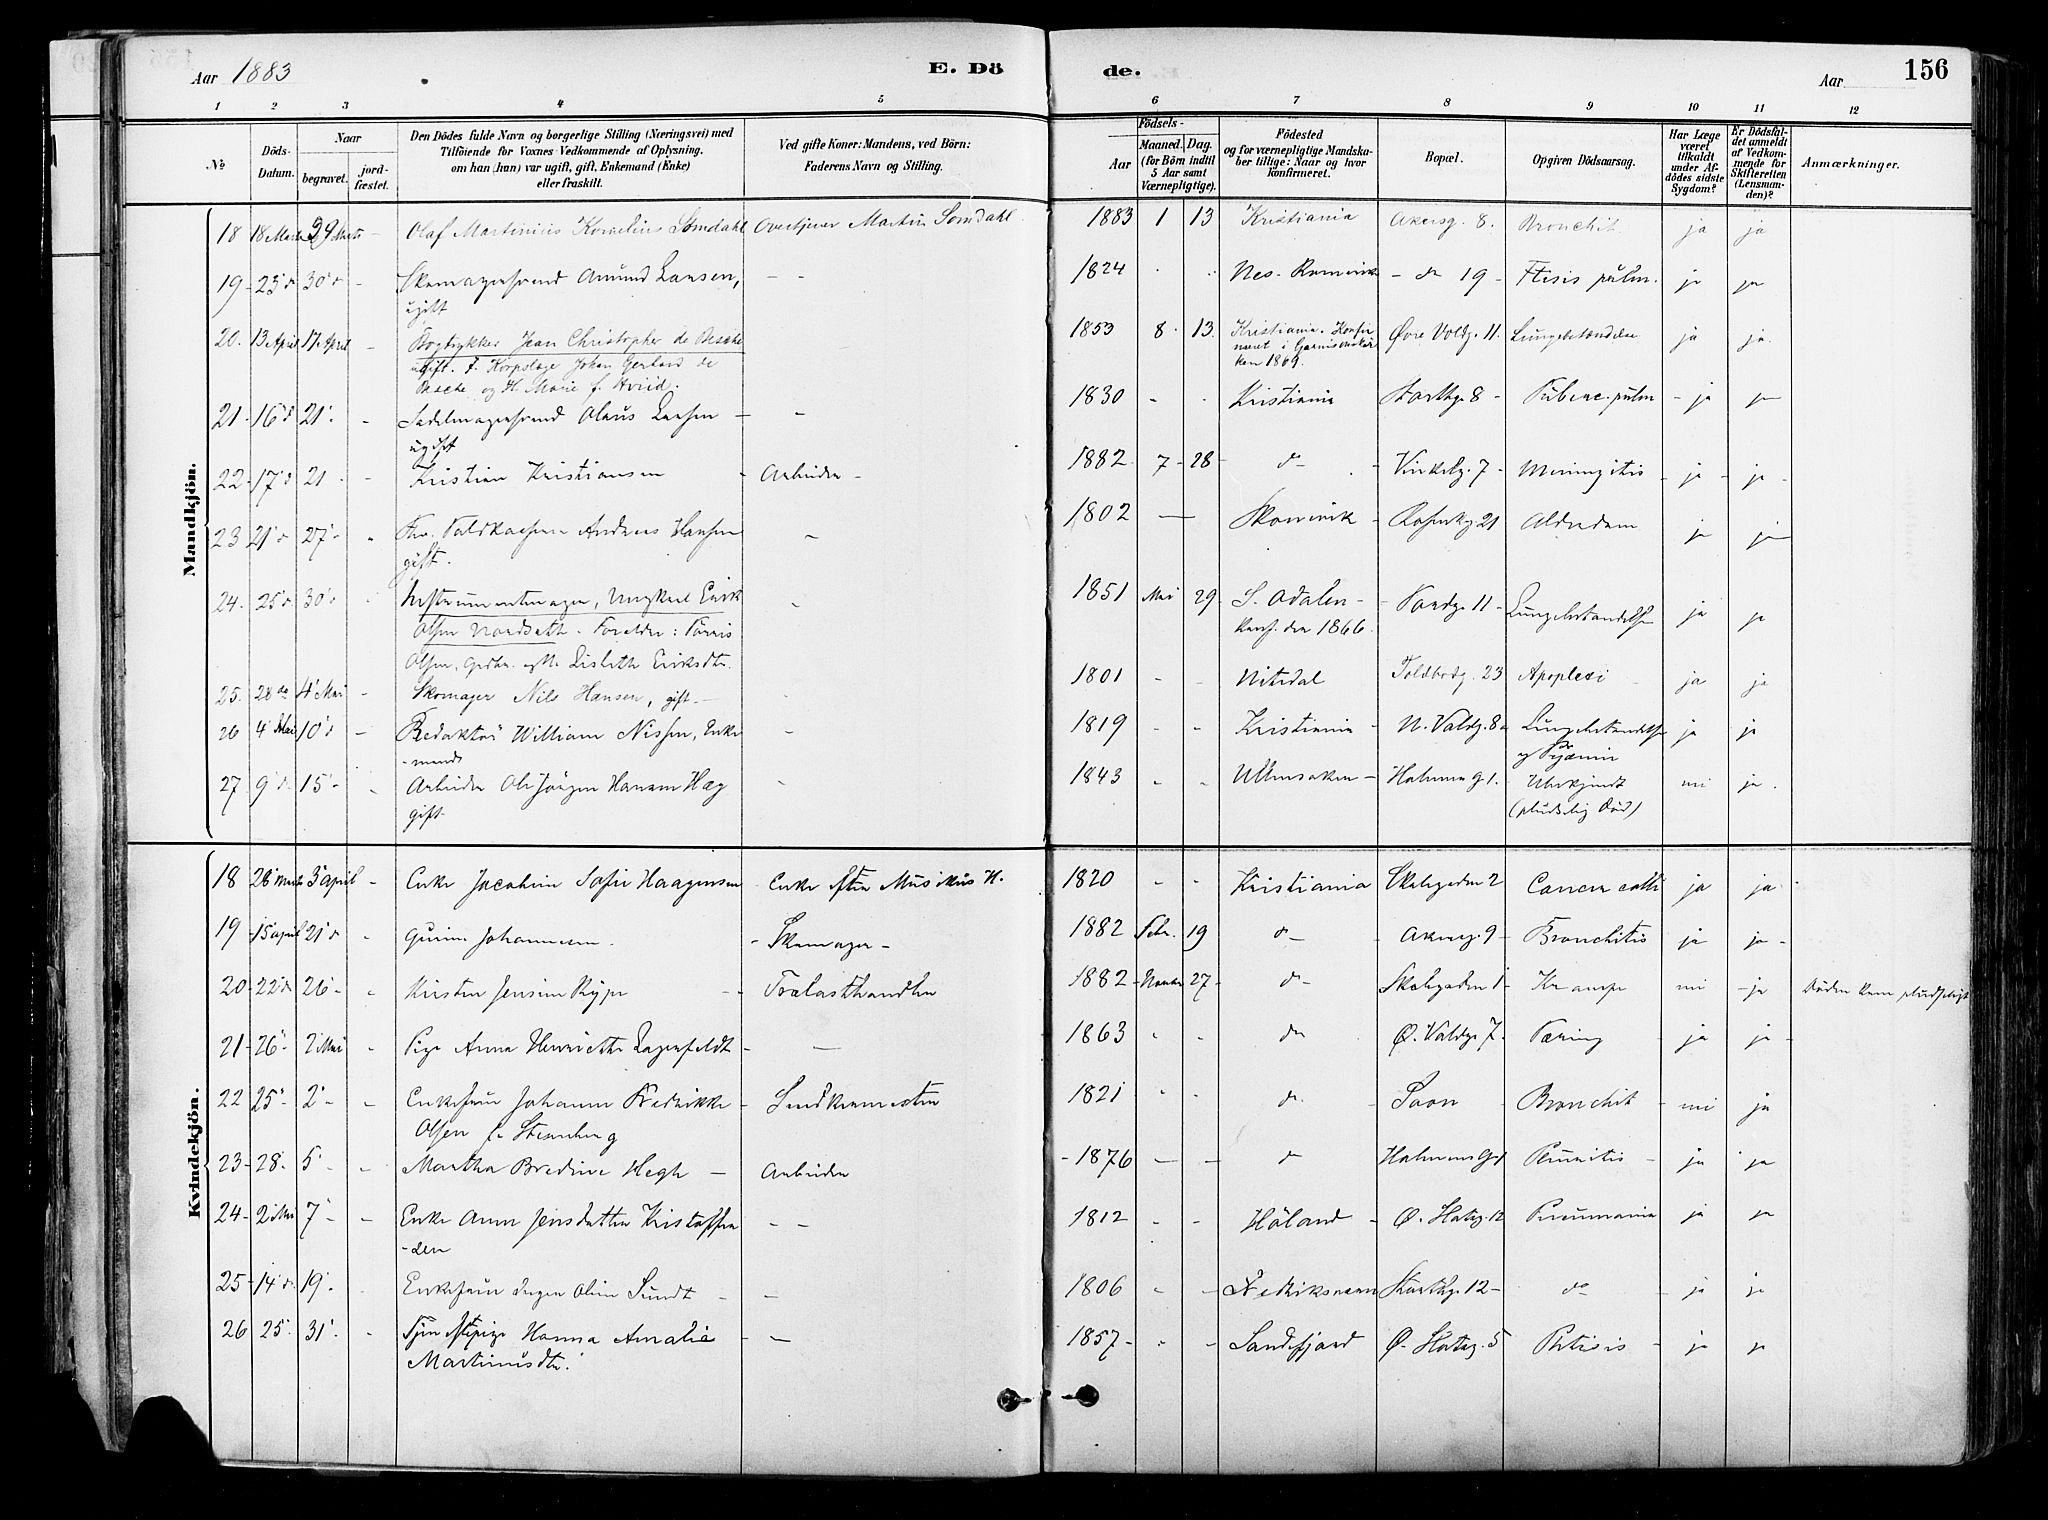 Aar 1883
E. Dö
de.
Aar
156
1 2 3 4 5 6 7 8 9 10 11 12
No
Döds-Datum.
Naar
begravet.
jord-fæstet.
Den Dödes fulde Navn og borgerlige Stilling (Næringsvei) med
Tilföiende for Voxnes Vedkommende af Oplysning,
om han (hun) var ugift, gift, Enkemand (Enke)
eller fraskilt.
Ved gifte Koner: Mandens, ved Börn:
Faderens Navn og Stilling.
Födsels-
Aar
Maaned. Dag.
(for Börn indtil
5 Aar samt
Værnepligtige).
Födested
og for værnepligtige Mandska-
ber tillige: Naar og hvor
konfirmeret.
Bopæl.
Opgiven Dödsaarsag.
Har Læge
været
tilkaldt
under Af-
dödes sidste
Sygdom?
Er Dödsfal-
det anmeldt
af Vedkom-
mende for
Skifteretten
(Lensman-
den)?
Anmærkninger.
Mandkjön.
18 18 Marts 29 Marts - Olaf Martinius Kornelius Somdahl Overtjener Martin Somdahl 1883 1 13 Kristiania Akersg. 8. Bronchit. ja ja
19 - 23 d 30 d - Skomagersvend Amund Larsen, - - 1824 Nes - Romerik - do 19 - Ftisis pulm. ja ja
ugift
20. 13 April 17 April - Bogtrykker Jean Christopher de Besche 1853 8. 13. Kristiania. Konfir Øvre Voldg. 11. Lungebetændelse ja ja.
ugift. F. Korpslæge Johan Gerhard de
meret i Garnisonskir
Besche og H. Marie f. Hviid.
ken 1869.
21 - 16 d 21 - - Sadelmagersvend Olaus Larsen - - 1830 - - Kristiania Storthg. 8 - Tuberc. pulm - ja ja
ugift
22 - 17 d 21 - - Kristian Kristiansen - Arbeider - 1882 7 - 28 - d - - Vinkelg. 7 - Meningitis - ja - ja -
23 21 d 27 - - Andreas Hansen - 1802 - - Rosenkg. 21 Alderdom ja ja
gift.
24. 25 d 30 d Instrumentmager, Ungkarl Erik - 1851 Mai 29 - S. Odalen - - Lungebetændelse ja ja
Olsen Nordseth - Forældre:
Konf. den 1866.
Olsen, Lisbeth Eriksdtr.
25. 28 do 4 Mai - Skomager Nils Hansen, gift. - 1801 - - Nitedal Toldbodg. 23 Apoplexi ja ja
26 4 Mai 10 d - Redaktør William Nissen, Enke - 1819 - - Kristiania - N. Voldg. 8a Lungebetændelse ja ja
- mand
og Pyæmi
27 9 d 15 - - Arbeider Ole Jørgen Hansen - 1843 - - Ullensaker - Holmensg. 1. Ubekjendt nei ja.
gift.
(pludselig Død)
Kvindekjön.
18 28 Marts 3 April - Enke Jacobine Sofie Haagensen - Enke efter Musikus H. 1820 - - Kristiania Skolegaden 2 Cancer colli ja ja
19 - 15 april 21 d - Johannesen - Skomager - 1882 Febr. 19 d - - Akersg. 9 - Bronchitis ja ja -
20 - 22 d 26 - - Kirsten - Trælasthandler 1882 - Novbr 27 - d - Skolegaden 1 - Krampe nei - ja Døden kom pludseligt
21 - 26 - 2 Mai - Pige Anna Henriette Lagerfeldt - - 1863 - - do Ø. Voldg. 7. Tæring ja ja -
22 25 - 2 - - Enkefrue Johanne Fredrikke - 1821 - - do - Bronchit - nei ja
Olsen f. Steenberg
23 - 28 - 5 - - Martha Bredine Hegh - Arbeider - 1876 - - d Holmensg. 1 - ja ja
24 - 2 Mai 7 - - Enke Anne Jensdatter Kristoffer - - 1812 - - Höland - Ø. Slotsg. 12 Pneumonia ja ja
- sen
25 - 14 d 19. Enkefrue Inger Oline Sundt - - 1806 - - Fredriksværn Storthg. 12 - do - ja ja
26 25 31 - Tjenestepige Hanna Amalie - - 1857 - - - Sandefjord Ø. Slotsg. 5 Phtisis - ja ja
Martinusdtr.